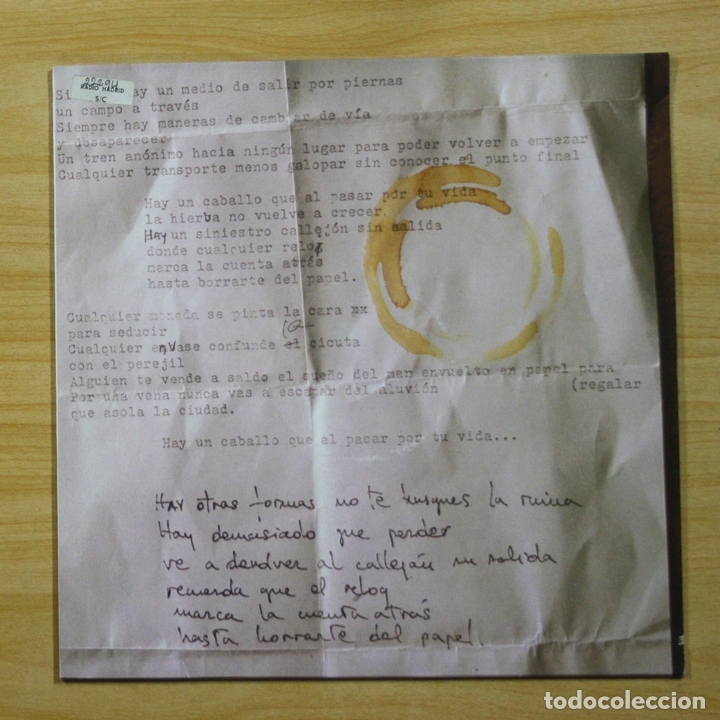 22294
RADIO MADRID
S/C
Si hay un medio de salir por piernas
un campo a través
Siempre hay maneras de cambiar de vía
y desaparecer
Un tren anónimo hacia ningún lugar para poder volver a empezar
Cualquier transporte menos galopar sin conocer el punto final
Hay un caballo que al pasar por tu vida
la hierba no vuelve a crecer.
Hay un siniestro callejón sin salida
donde cualquier reloj
marca la cuenta atrás
hasta borrarte del papel.
Cualquier moneda se pinta la cara xx
para seducir
la
Cualquier envase confunde el cicuta
con el perejil
Alguien te vende a saldo el sueño del man envuelto en papel para
Por una vena nunca vas a escapar del aluvión (regalar
que asola la ciudad.
Hay un caballo que al pacar por tu vida...
Hay otras formas no te busques la ruina
Hay demasiado que perder
ve a devolver al callejón su salida
recuerda que el reloj
marca la cuenta atrás
hasta borrarte del papel.
todocoleccion